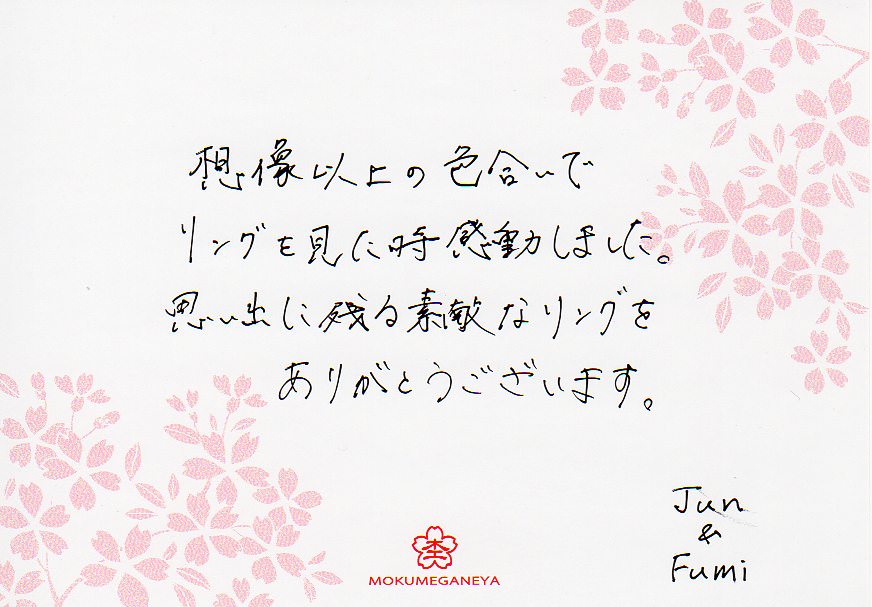 想像以上の色合いで
リングを見た時感動しました。
思い出に残る素敵なリングを
ありがとうございます。
Jun
&
Fumi
杢
MOKUMEGANEYA